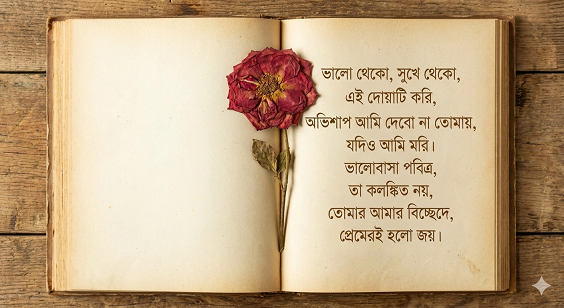 ভালো থেকো, সুখে থেকো,
এই দোয়াটি করি,
অভিশাপ আমি দেবো না তোমায়,
যদিও আমি মরি।
ভালোবাসা পবিত্র,
তা কলঙ্কিত নয়,
তোমার আমার বিচ্ছেদে,
প্রেমেরই হলো জয়।